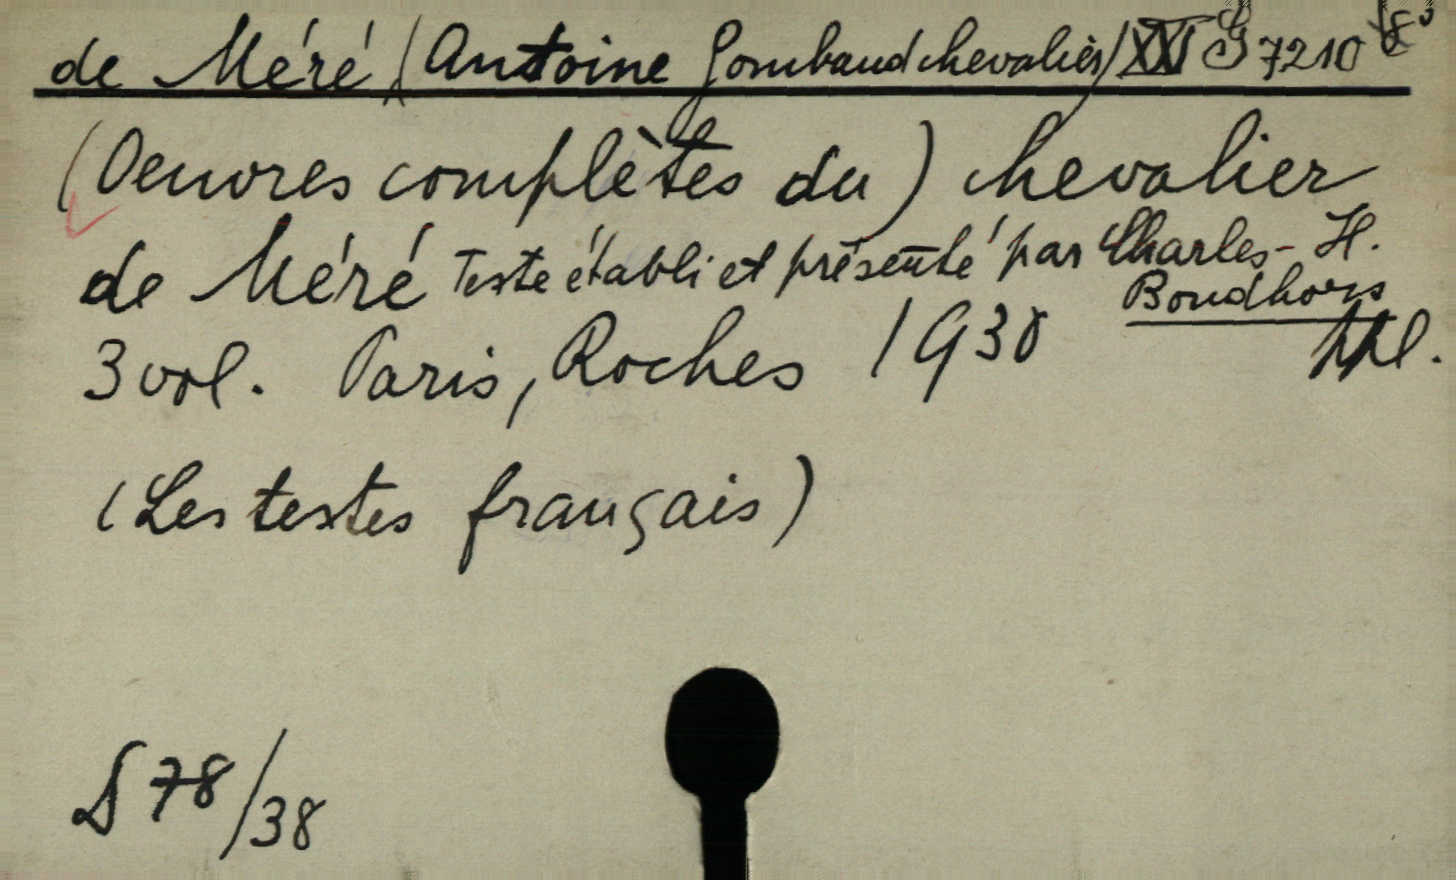 de Méré (Antoine Gombaud chevalier) XXI G 7210 8°
(Oeuvres complètes du) chevalier
de Méré Texte établi et présenté par Charles-H.
Boudhors
3 vol. Paris, Roches 1930
(Les textes français)
S 78/38